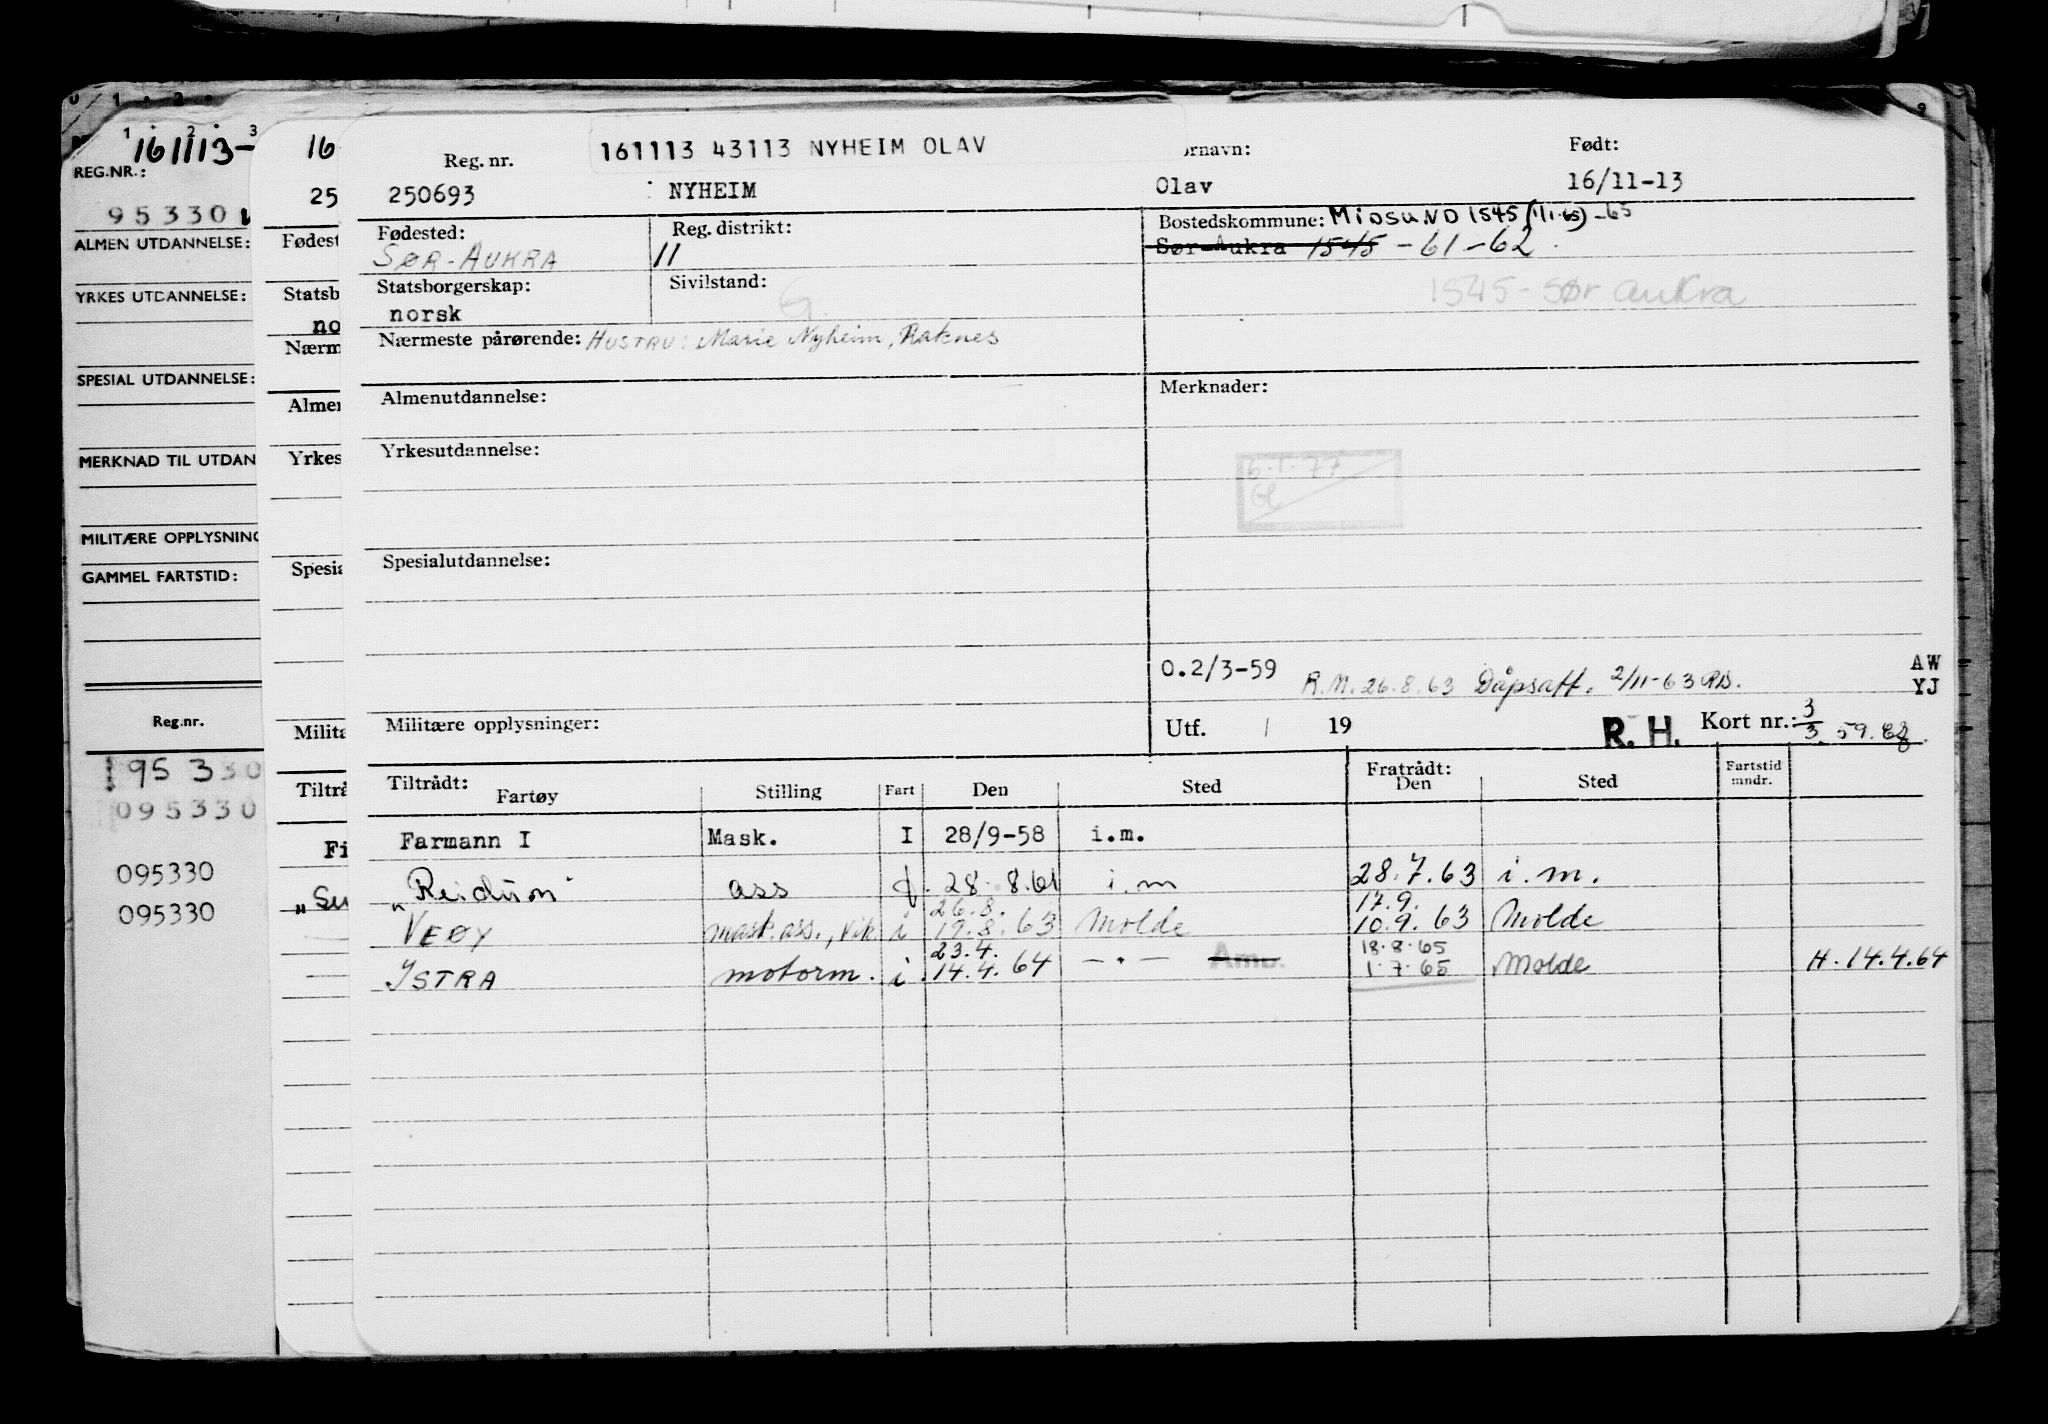 161113-
REG.NR.:
95330
ALMEN UTDANNELSE:
YRKES UTDANNELSE:
SPESIAL UTDANNELSE:
MERKNAD TIL UTDAN
MILITÆRE OPPLYSNING
GAMMEL FARTSTID:
Reg.nr.
195330
095330
095330
095330
16
25
Fødest
Statsb
no
Nærm
Almen
Yrkes
Spesia
Milita
Tiltrå
Fi
161113 43113 NYHEIM OLAV
Reg. nr. ornavn: Født:
250693 NYHEIM Olav 16/11-13
Fødested: Reg. distrikt: Bostedskommune: MIDSUND 1545 (1/1-65) -65
SØR-AUKRA 11 Sør-Aukra 1545 -61-62.
Statsborgerskap: Sivilstand: 1545-Sør Aukra
norsk G.
Nærmeste pårørende: HUSTRU: Marie Nyheim, Raknes
Almenutdannelse: Merknader:
Yrkesutdannelse:
6.1.77
Spesialutdannelse:
O.2/3-59 R.M. 26.8.63 Dåpsatt. 2/11-63 AW
YJ
Militære opplysninger: Utf. 19 R. H. Kort nr.: 3/3 59.
Tiltrådt: Fratrådt:
Fartøy Stilling Fart Den Sted Den Sted Fartstid mndr.
Farmann I Mask. I 28/9-58 i.m.
"Reidun" ass f. 28.8.61 i.m 28.7.63 i.m.
26.8. 17.9.
VEØY mask.ass., vik i 19.8.63 Molde 10.9.63 Molde
23.4. 18.8.65
ISTRA motorm. i 14.4.64 —.— 1.7.65 Molde H.14.4.64